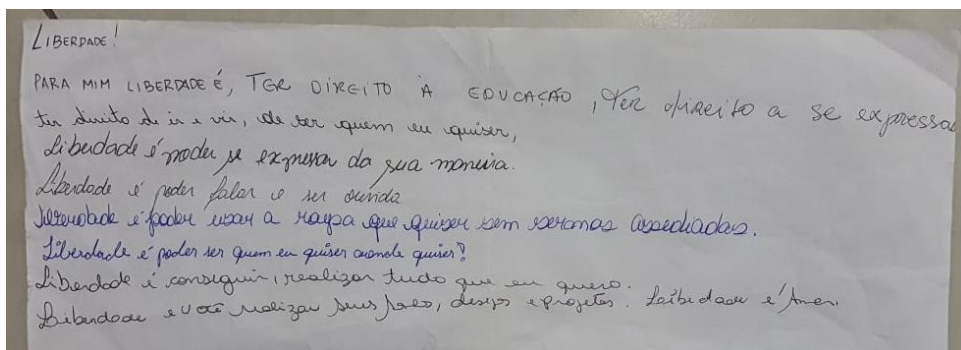 LIBERDADE!
PARA MIM LIBERDADE É, TER DIREITO À EDUCAÇÃO, Ter direito a se expressa
ter direito de ir e vir, de ser quem eu quiser,
Liberdade é poder se expressar da sua maneira.
Liberdade é poder falar e ser ouvida
Liberdade é poder usar a roupa que quiser sem sermos assediadas.
Liberdade é poder ser quem eu quiser quando quiser!
Liberdade é conseguir, realizar tudo que eu quero.
Liberdade e você realizar seus, desejos e projetos. Leibidade é Amar.